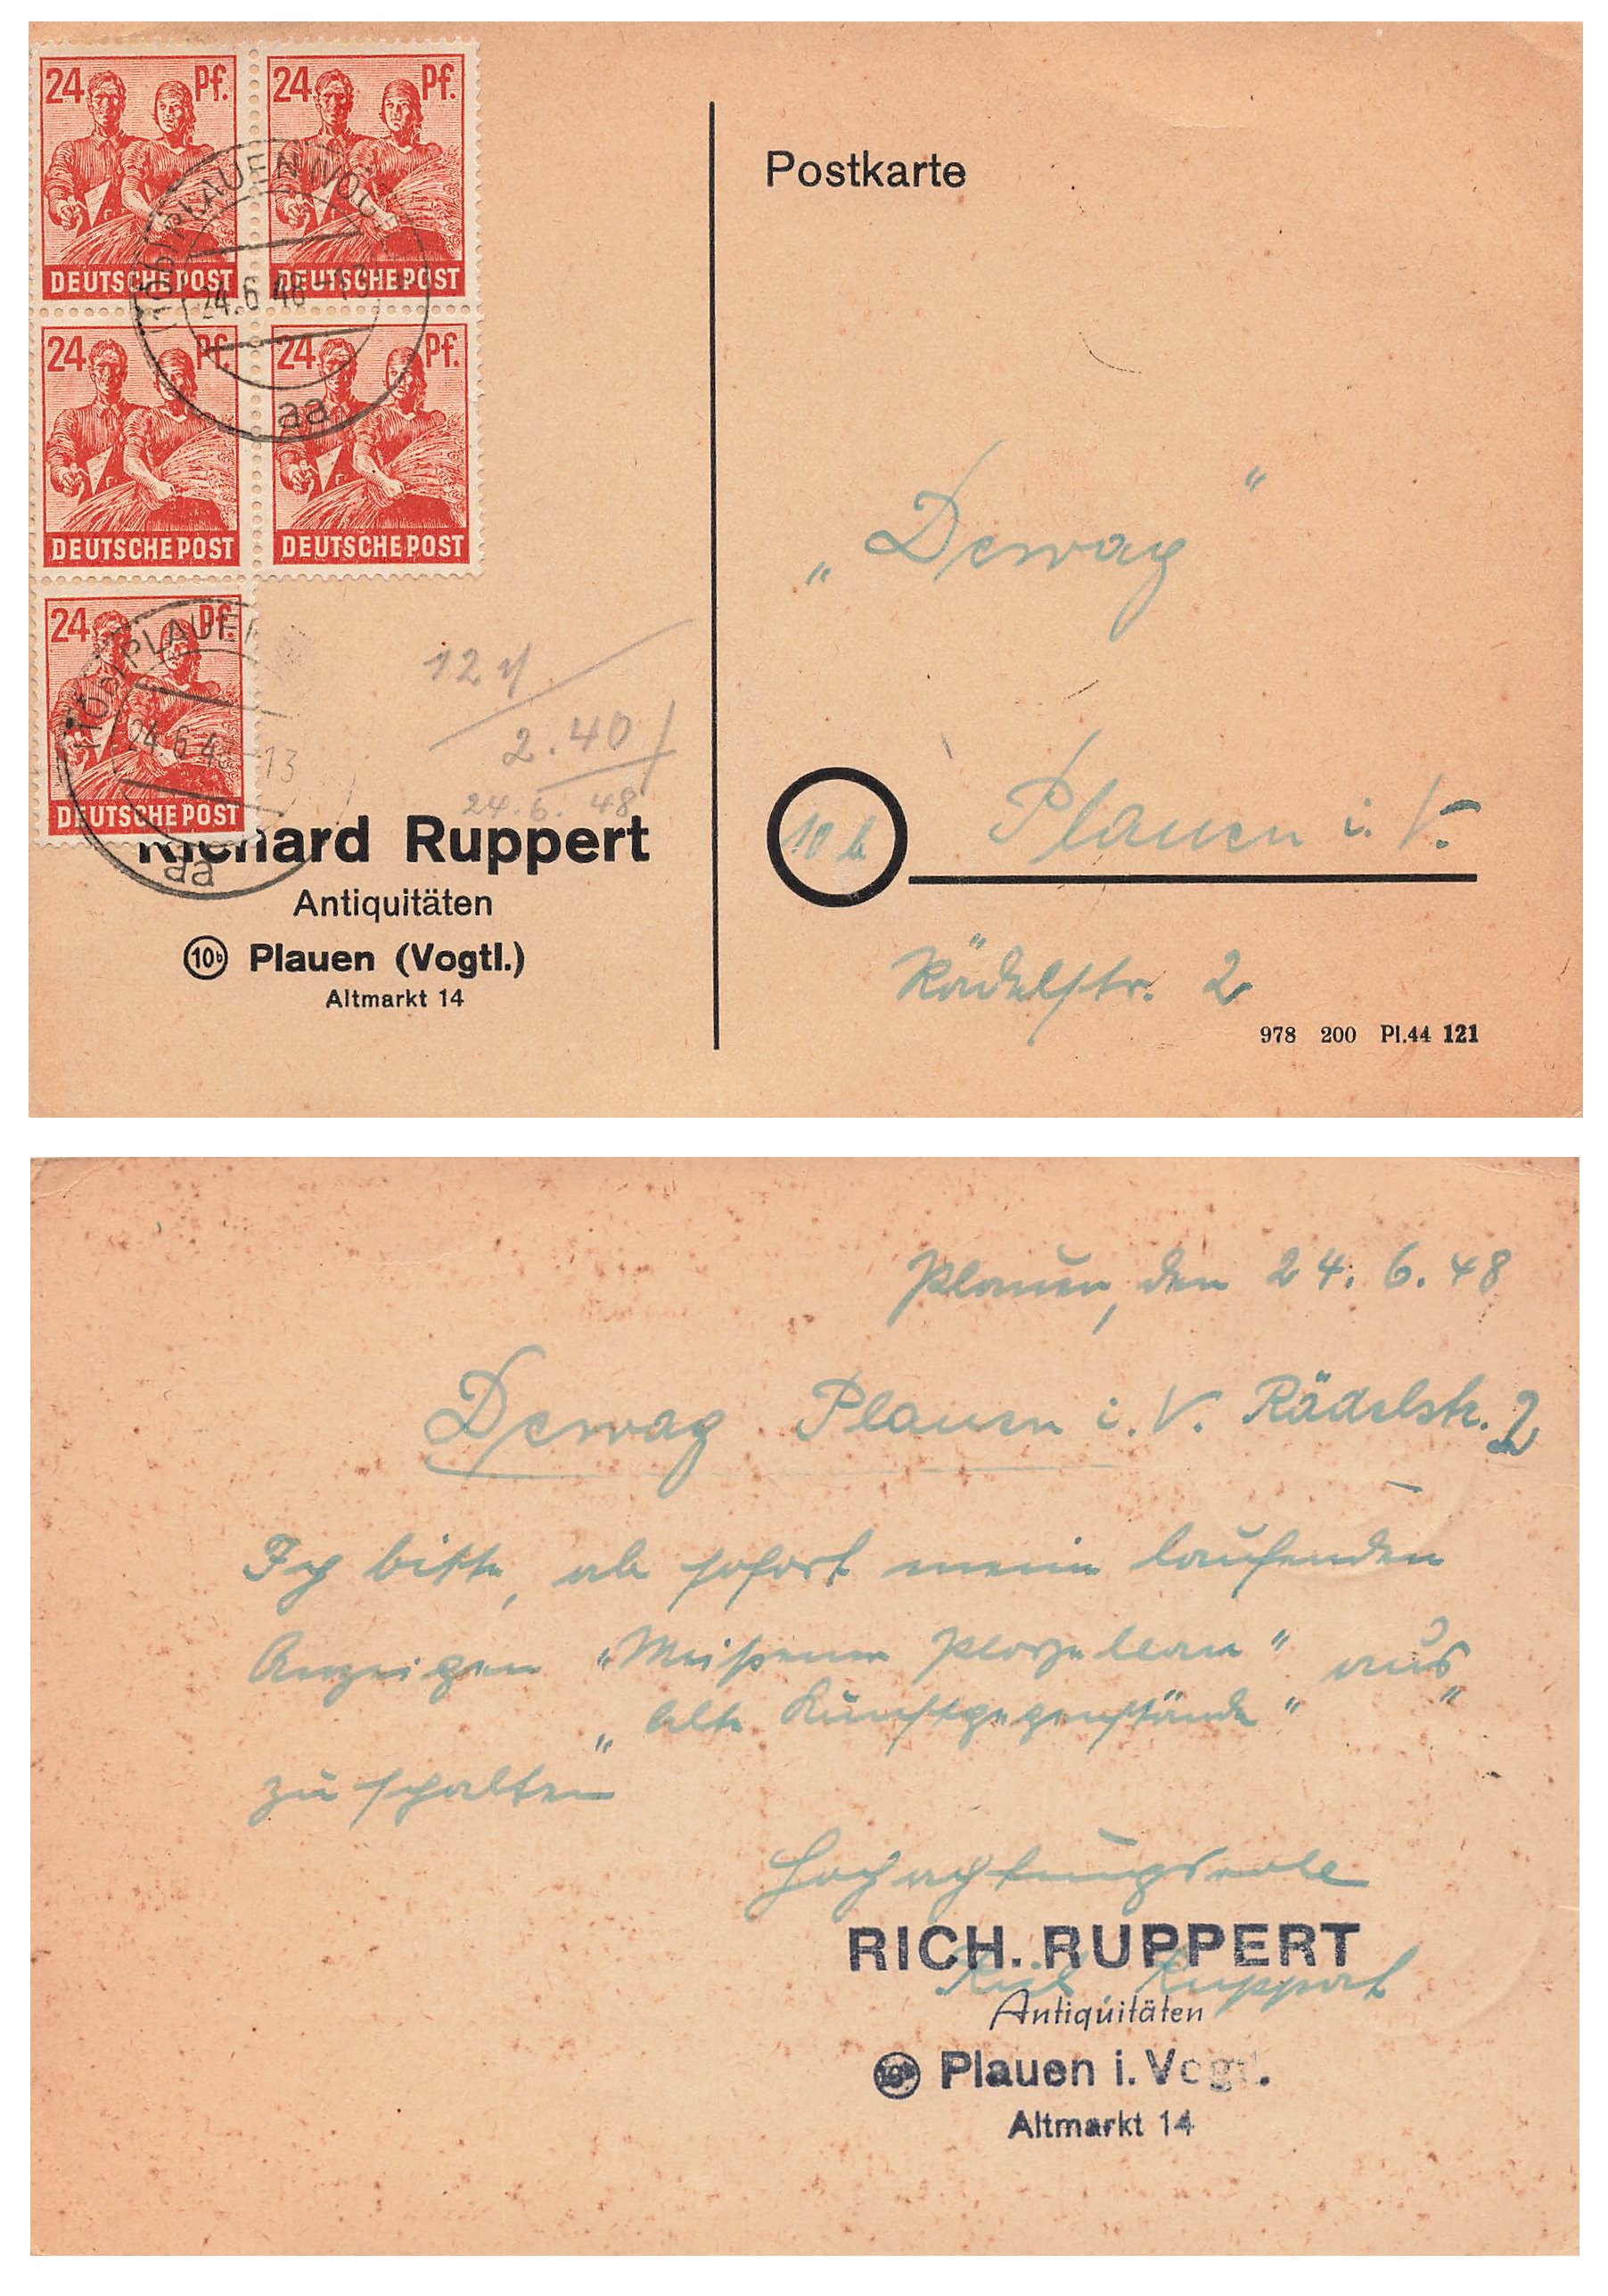 24 Pf. 24 Pf.
DEUTSCHE POST DEUTSCHE POST
24 Pf. 24 Pf.
DEUTSCHE POST DEUTSCHE POST
24 Pf.
DEUTSCHE POST
(10b) PLAUEN (VOGTL
24.6.48-13
aa
(10b) PLAUEN
24.6.48-13
aa
2.40
24.6.48
Richard Ruppert
Antiquitäten
10b Plauen (Vogtl.)
Altmarkt 14
Postkarte
„Dewag“
10b Plauen i. V.
Rädelstr. 2
978 200 Pl.44 121
Plauen, den 24. 6. 48
Dewag Plauen i. V. Rädelstr. 2
Ich bitte, ab sofort meine laufenden
Anzeigen „Meißener Porzellan“ aus
„Alte Kunstgegenstände“
zu schalten
Hochachtungsvoll
RICH. RUPPERT
Rich Ruppert
Antiquitäten
10b Plauen i. Vogtl.
Altmarkt 14